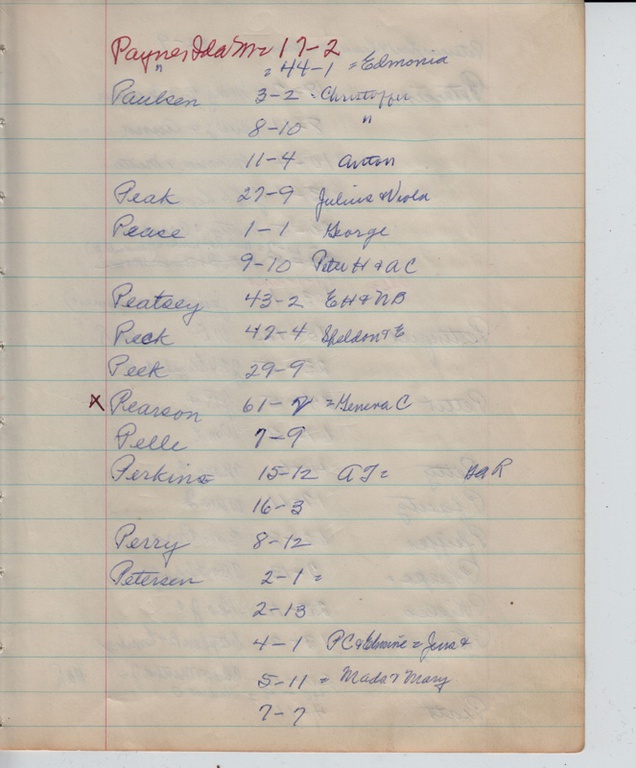 Payne, Ida M = 17-2
" = 44-1 = Edmonia
Paulsen 3-2 - Christoffer
8-10 "
11-4 Anton
Peak 27-9 Julius & Viola
Pease 1-1 George
9-10 Peter H & A C
Peatsey 43-2 EH & NB
Peck 47-4 Sheldon & E
Peek 29-9
x Pearson 61-2 = Geneva C
Pelle 7-9
Perkins 15-12 A J =
16-3
Perry 8-12
Petersen 2-1 =
2-13
4-1 PC & Edmine = Jens &
5-11 = Mads & Mary
7-7